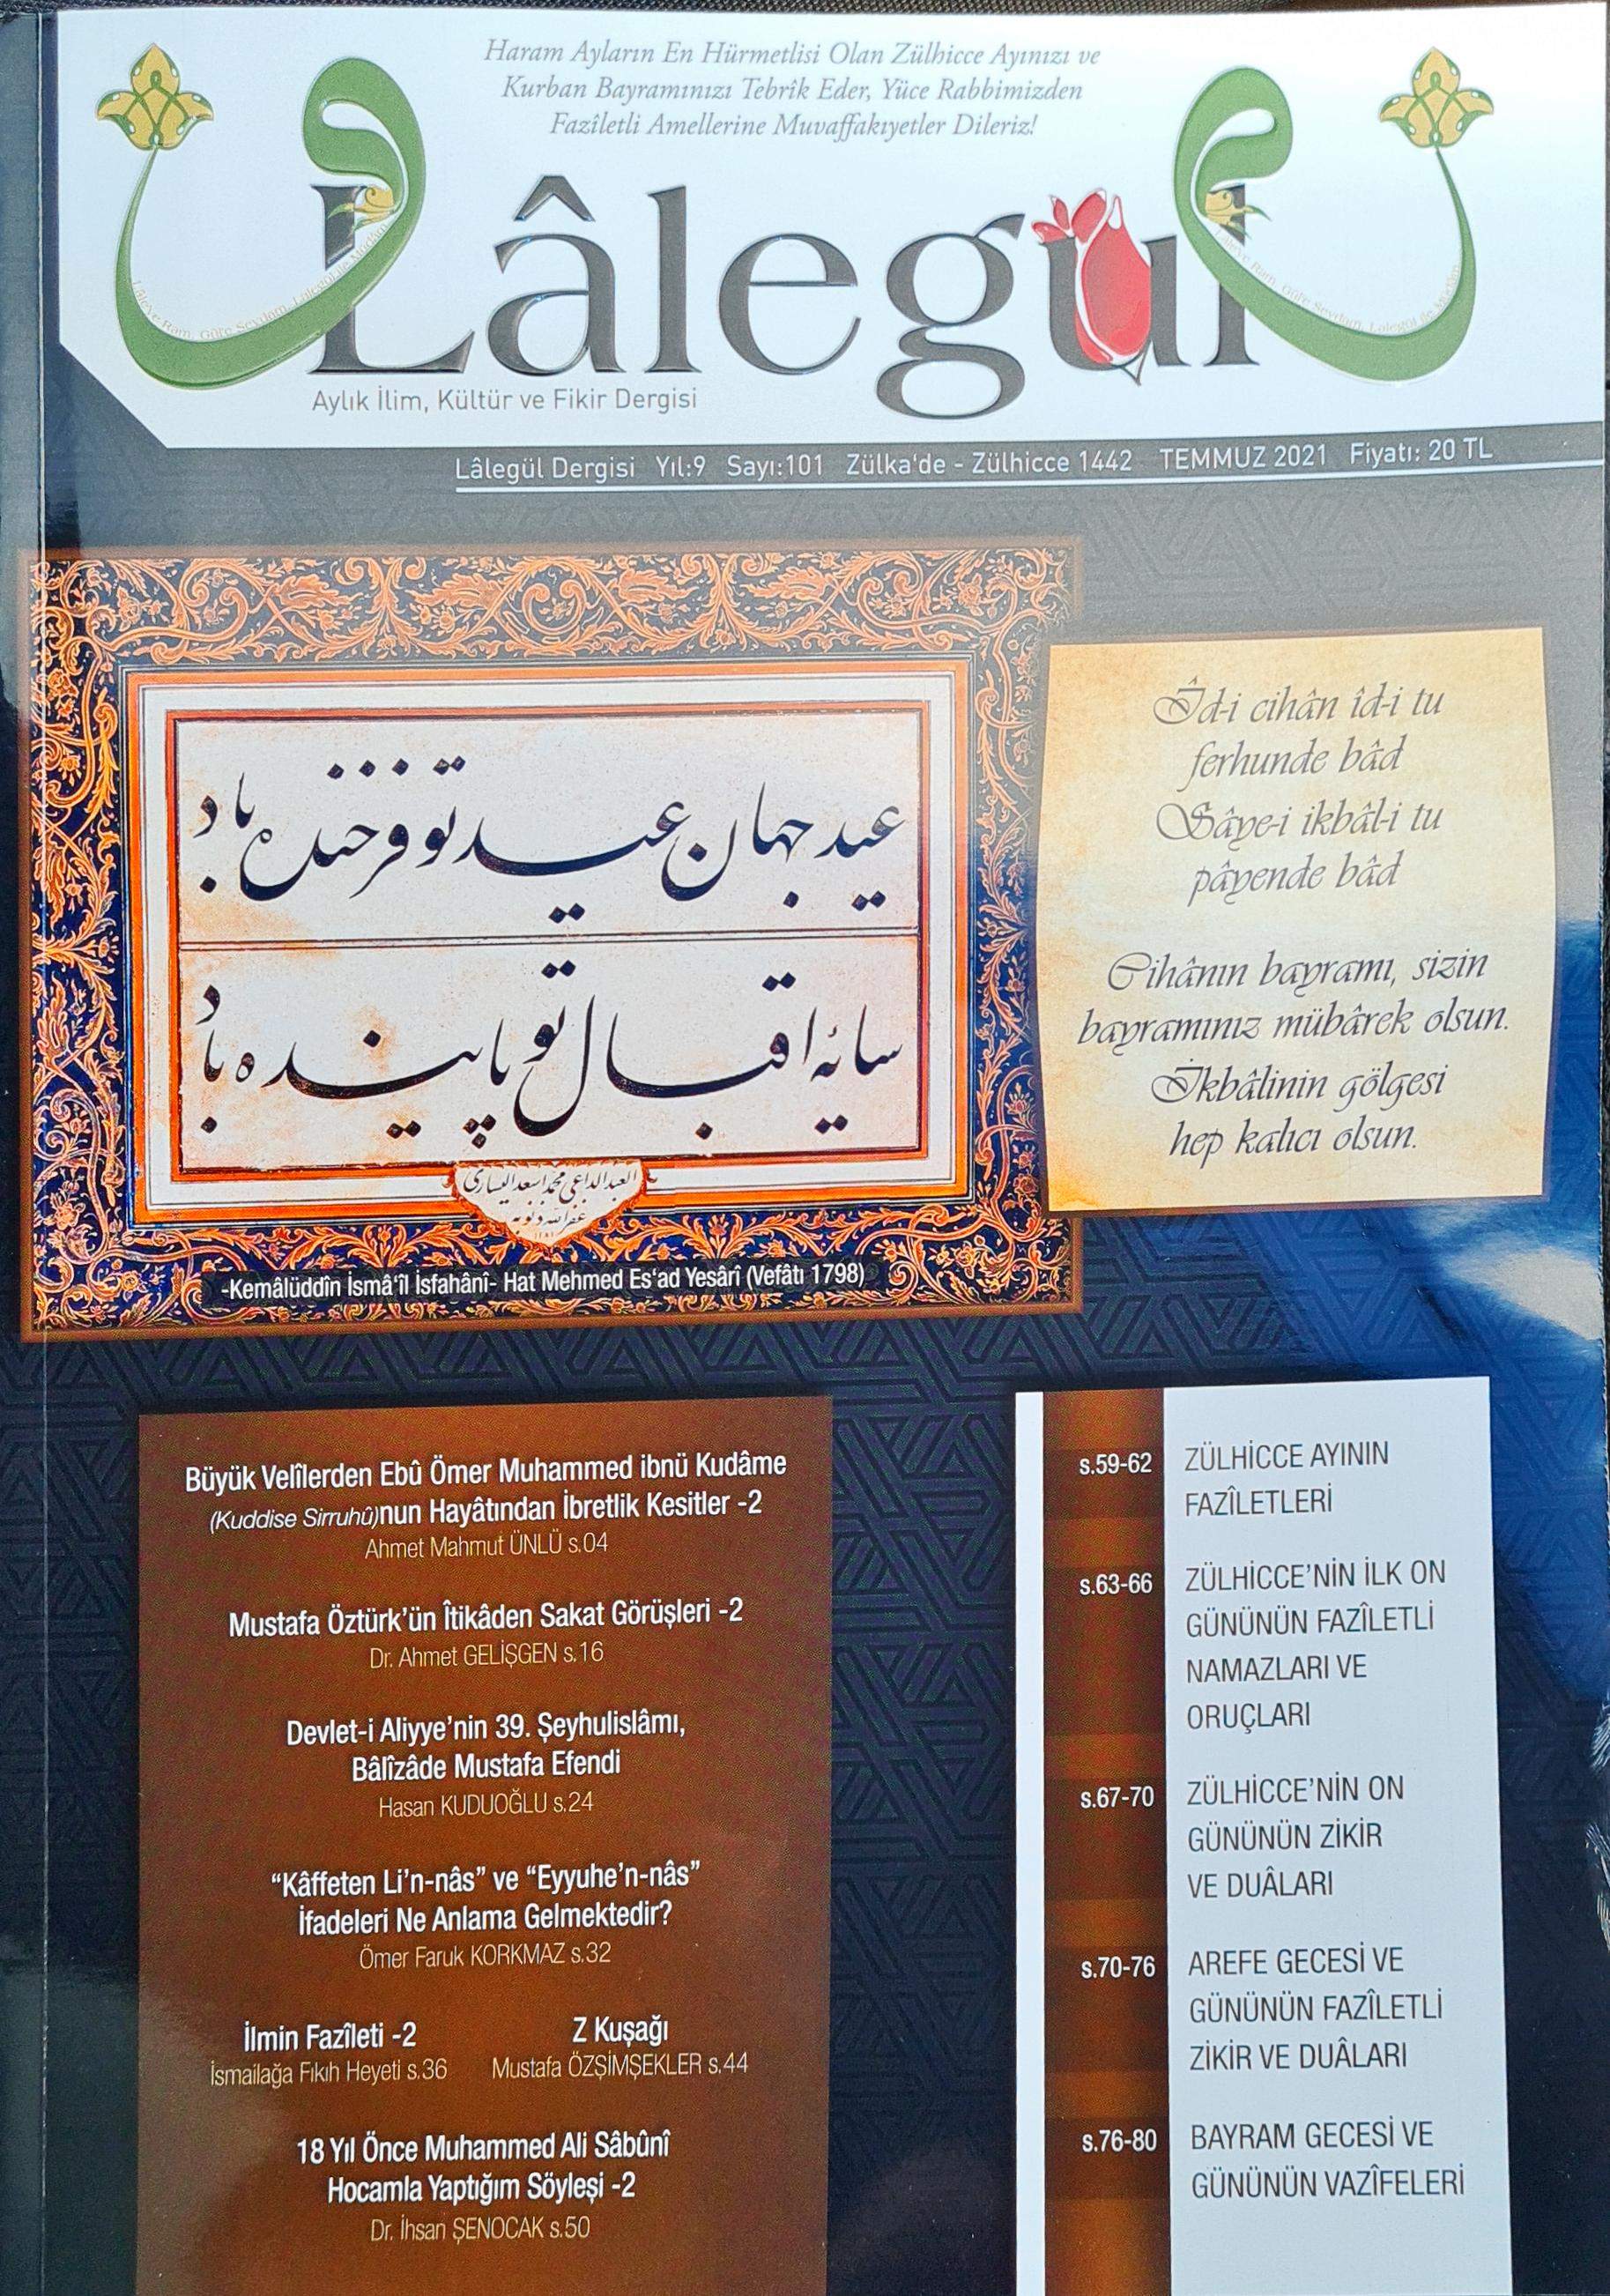 Haram Ayların En Hürmetlisi Olan Zülhicce Ayınızı ve
Kurban Bayramınızı Tebrîk Eder, Yüce Rabbimizden
Fazîletli Amellerine Muvaffakıyetler Dileriz!
Lâlegül
Aylık İlim, Kültür ve Fikir Dergisi
Lâlegül Dergisi Yıl:9 Sayı:101 Zülka'de - Zülhicce 1442 TEMMUZ 2021 Fiyatı: 20 TL
عید جهان عید تو فرخنده باد
سایهٔ اقبال تو پاینده باد
العبد الداعی محمد اسعد الیساری
غفر الله ذنوبه
-Kemâlüddîn İsmâ'îl İsfahânî- Hat Mehmed Es'ad Yesârî (Vefâtı 1798)
Îd-i cihân îd-i tu
ferhunde bâd
Sâye-i ikbâl-i tu
pâyende bâd
Cihânın bayramı, sizin
bayramınız mübârek olsun.
İkbâlinin gölgesi
hep kalıcı olsun.
Büyük Velîlerden Ebû Ömer Muhammed ibnü Kudâme
(Kuddise Sirruhû)nun Hayâtından İbretlik Kesitler -2
Ahmet Mahmut ÜNLÜ s.04
Mustafa Öztürk'ün Îtikâden Sakat Görüşleri -2
Dr. Ahmet GELİŞGEN s.16
Devlet-i Aliyye'nin 39. Şeyhulislâmı,
Bâlîzâde Mustafa Efendi
Hasan KUDUOĞLU s.24
“Kâffeten Li'n-nâs” ve “Eyyuhe'n-nâs”
İfadeleri Ne Anlama Gelmektedir?
Ömer Faruk KORKMAZ s.32
İlmin Fazîleti -2
İsmailağa Fıkıh Heyeti s.36
Z Kuşağı
Mustafa ÖZŞİMŞEKLER s.44
18 Yıl Önce Muhammed Ali Sâbûnî
Hocamla Yaptığım Söyleşi -2
Dr. İhsan ŞENOCAK s.50
s.59-62 ZÜLHİCCE AYININ
FAZÎLETLERİ
s.63-66 ZÜLHİCCE'NİN İLK ON
GÜNÜNÜN FAZÎLETLİ
NAMAZLARI VE
ORUÇLARI
s.67-70 ZÜLHİCCE'NİN ON
GÜNÜNÜN ZİKİR
VE DUÂLARI
s.70-76 AREFE GECESİ VE
GÜNÜNÜN FAZÎLETLİ
ZİKİR VE DUÂLARI
s.76-80 BAYRAM GECESİ VE
GÜNÜNÜN VAZÎFELERİ